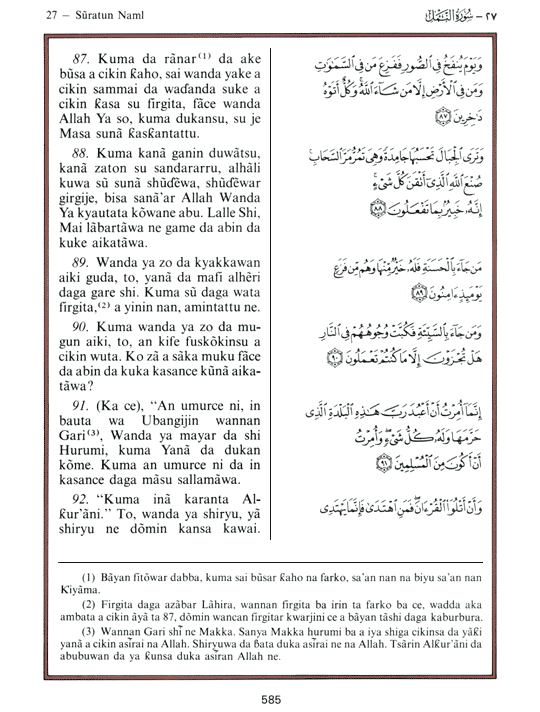 27 — Sūratun Naml
٢٧ — سُورَةُ النَّمْل
87. Kuma da rãnar(1) da ake
bũsa a cikin ƙaho, sai wanda yake a
cikin sammai da waɗanda suke a
cikin ƙasa su firgita, fãce wanda
Allah Ya so, kuma dukansu, su je
Masa sunã ƙasƙantattu.
88. Kuma kanã ganin duwãtsu,
kanã zaton su sandararru, alhãli
kuwa sũ sunã shũɗẽwa, shũɗẽwar
girgije, bisa sanã'ar Allah Wanda
Ya kyautata kõwane abu. Lalle Shi,
Mai lãbartãwa ne game da abin da
kuke aikatãwa.
89. Wanda ya zo da kyakkawan
aiki guda, to, yanã da mafi alhẽri
daga gare shi. Kuma sũ daga wata
firgita,(2) a yinin nan, amintattu ne.
90. Kuma wanda ya zo da mu-
gun aiki, to, an kife fuskõkinsu a
cikin wuta. Ko zã a sãka muku fãce
da abin da kuka kasance kũnã aika-
tãwa?
91. (Ka ce), "An umurce ni, in
bauta wa Ubangijin wannan
Gari(3), Wanda ya mayar da shi
Hurumi, kuma Yanã da dukan
kõme. Kuma an umurce ni da in
kasance daga mãsu sallamãwa.
92. "Kuma inã karanta Al-
ƙur'ãni." To, wanda ya shiryu, yã
shiryu ne dõmin kansa kawai.
وَيَوْمَ يُنفَخُ فِي ٱلصُّورِ فَفَزِعَ مَن فِي ٱلسَّمَٰوَٰتِ
وَمَن فِي ٱلْأَرْضِ إِلَّا مَن شَآءَ ٱللَّهُ وَكُلٌّ أَتَوْهُ
دَٰخِرِينَ ٨٧
وَتَرَى ٱلْجِبَالَ تَحْسَبُهَا جَامِدَةً وَهِيَ تَمُرُّ مَرَّ ٱلسَّحَابِ
صُنْعَ ٱللَّهِ ٱلَّذِيٓ أَتْقَنَ كُلَّ شَيْءٍ
إِنَّهُۥ خَبِيرٌۢ بِمَا تَفْعَلُونَ ٨٨
مَن جَآءَ بِٱلْحَسَنَةِ فَلَهُۥ خَيْرٌ مِّنْهَا وَهُم مِّن فَزَعٍ
يَوْمَئِذٍ ءَامِنُونَ ٨٩
وَمَن جَآءَ بِٱلسَّيِّئَةِ فَكُبَّتْ وُجُوهُهُمْ فِي ٱلنَّارِ
هَلْ تُجْزَوْنَ إِلَّا مَا كُنتُمْ تَعْمَلُونَ ٩٠
إِنَّمَآ أُمِرْتُ أَنْ أَعْبُدَ رَبَّ هَٰذِهِ ٱلْبَلْدَةِ ٱلَّذِي
حَرَّمَهَا وَلَهُۥ كُلُّ شَيْءٍ وَأُمِرْتُ
أَنْ أَكُونَ مِنَ ٱلْمُسْلِمِينَ ٩١
وَأَنْ أَتْلُوَا۟ ٱلْقُرْءَانَ فَمَنِ ٱهْتَدَىٰ فَإِنَّمَا يَهْتَدِي
(1) Bãyan fitõwar dabba, kuma sai bũsar ƙaho na farko, sa'an nan na biyu sa'an nan
Ƙiyãma.
(2) Firgita daga azãbar Lãhira, wannan firgita ba irin ta farko ba ce, wadda aka
ambata a cikin ãyã ta 87, dõmin wancan firgitar kwarjini ce a bãyan tãshi daga kaburbura.
(3) Wannan Gari shĩ ne Makka. Sanya Makka hurumi ba a iya shiga cikinsa da yãƙi
yanã a cikin asĩrai na Allah. Shiryuwa da ɓata duka asĩrai ne na Allah. Tsãrin Alƙur'ãni da
abubuwan da ya ƙunsa duka asĩran Allah ne.
585